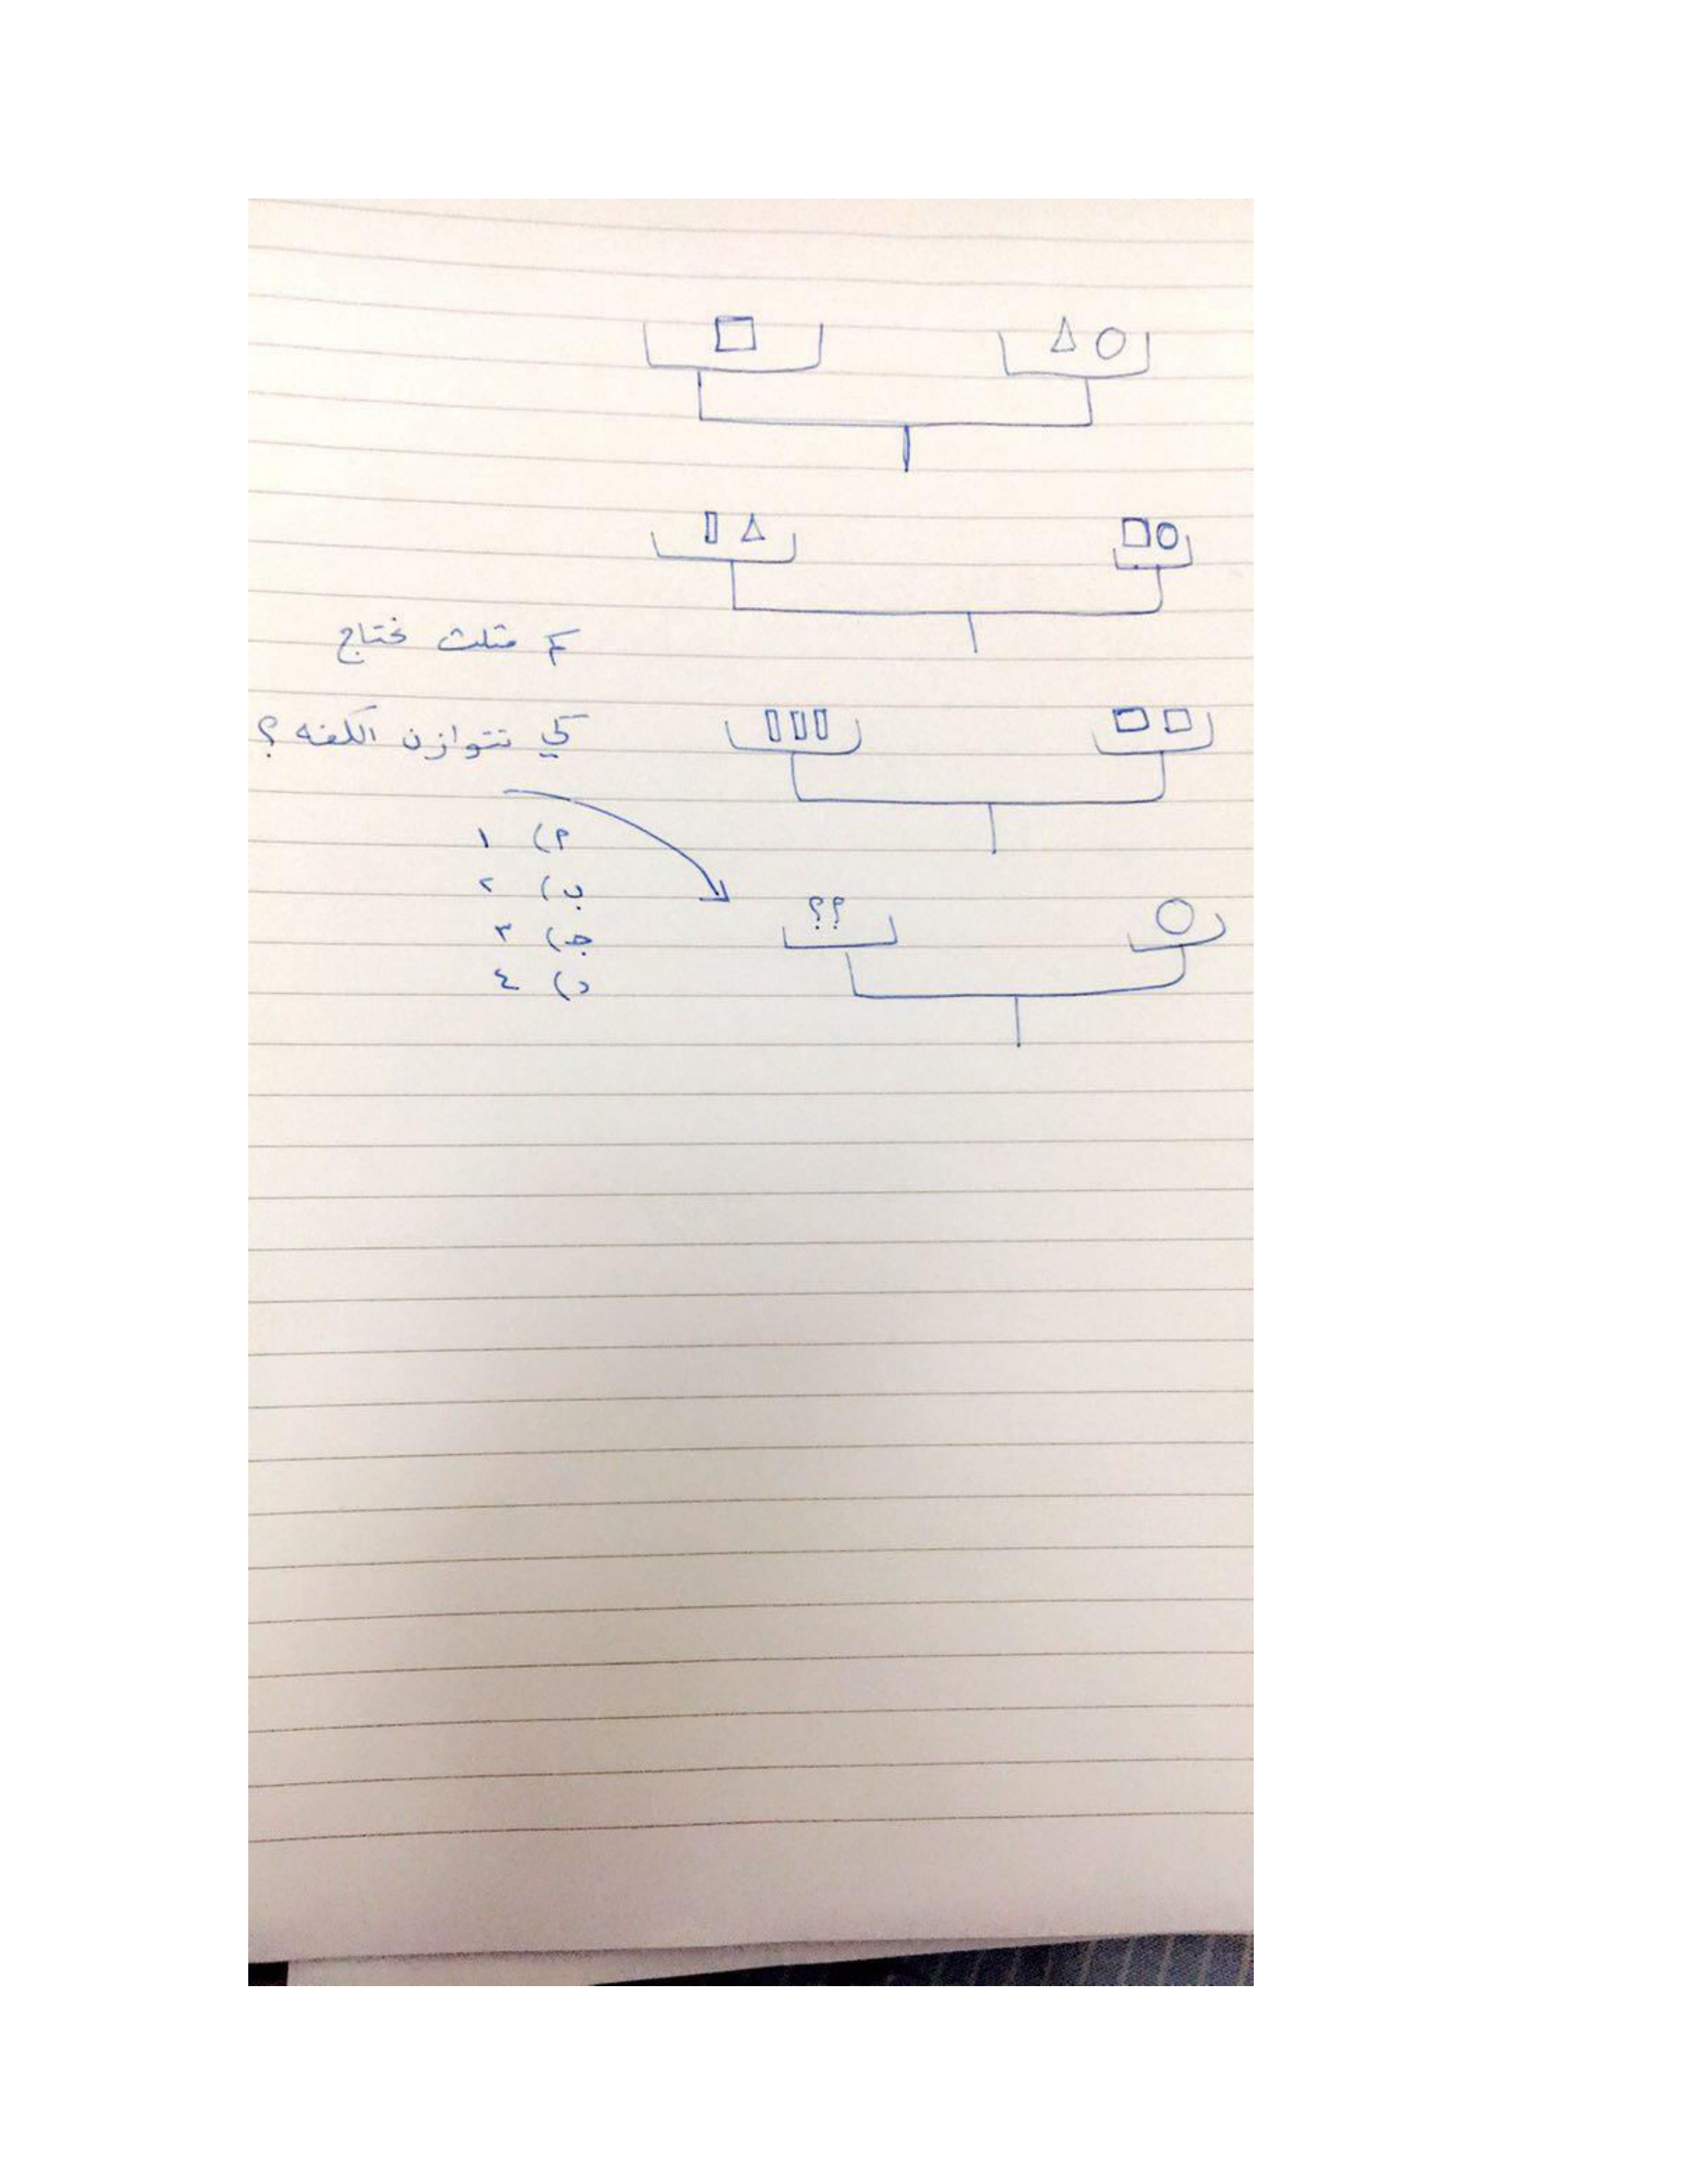 كم مثلث نحتاج
كي تتوازن الكفه ؟
أ) ١
ب) ٢
جـ) ٣
د) ٤
؟؟